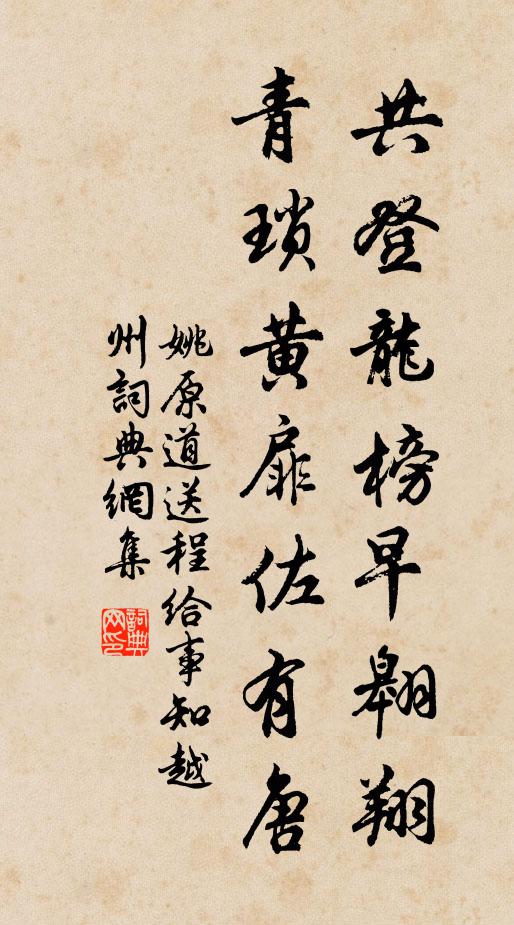 共登龍榜早翱翔
青瑣黃扉佐有唐
姚原道送程給事知越
州詞典網集
詞典网印